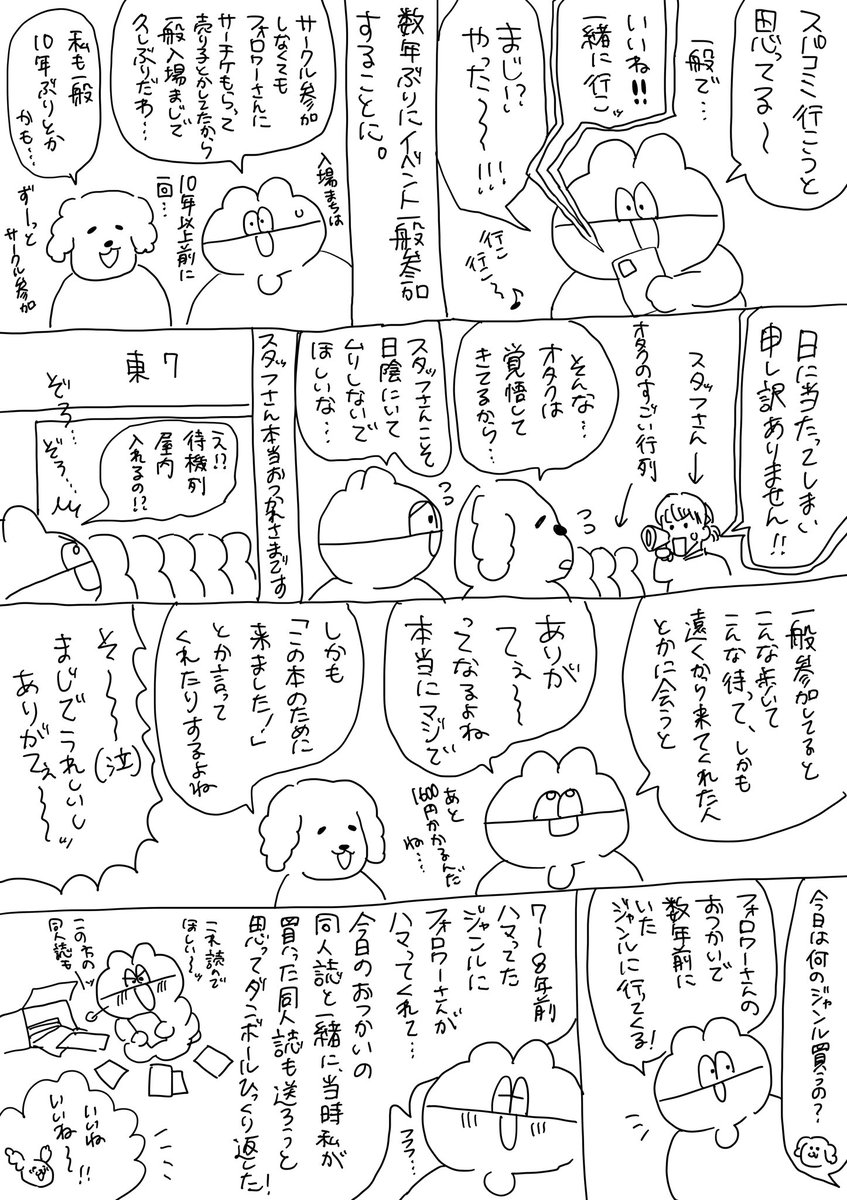 スパコミ行こうと
思ってる〜
一般で…
いいね!!
一緒に行こッ
まじ!?
やった〜〜!!!
行こ
行こ〜♪
数年ぶりにイベント一般参加
することに。
サークル参加
しなくても
フォロワーさんに
サーチケもらって
売り子とかしてたから
一般入場まじで
久しぶりだわ…
入場まちは
10年以上前に
一回…
私も一般
10年ぶりとか
かも…
ずーっと
サークル参加
日に当たってしまい
申し訳ありません!!
スタッフさん→
オタクのすごい行列
そんな…
オタクは
覚悟して
きてるから…
スタッフさんこそ
日陰にいて
ムリしないで
ほしいな…
スタッフさん本当おつかれさまです
東7
え!?
待機列
屋内
入れるの!?
ぞろ…
ぞろ…
一般参加してると
こんな歩いて
こんな待って、しかも
遠くから来てくれた人
とかに会うと
ありが
てぇ〜〜
ってなるよね
本当にマジで
あと
1600円かかるんだ
ね…
しかも
「この本のために
来ました!」
とか言って
くれたりするよね
そ〜〜〜(泣)
まじでうれしいし
ありがてぇ〜〜〜ッ
今日は何のジャンル買うの?
フォロワーさんの
おつかいで
数年前に
いた
ジャンルに行ってくる!
7〜8年前
ハマってた
ジャンルに
フォロワーさんが
ハマってくれて…
フフ…
今日のおつかいの
同人誌と一緒に、当時私が
買った同人誌も送ろうと
思ってダンボールひっくり返した!
これ読んで
ほしい〜ッ
同人誌も
いいね
いいね〜!!